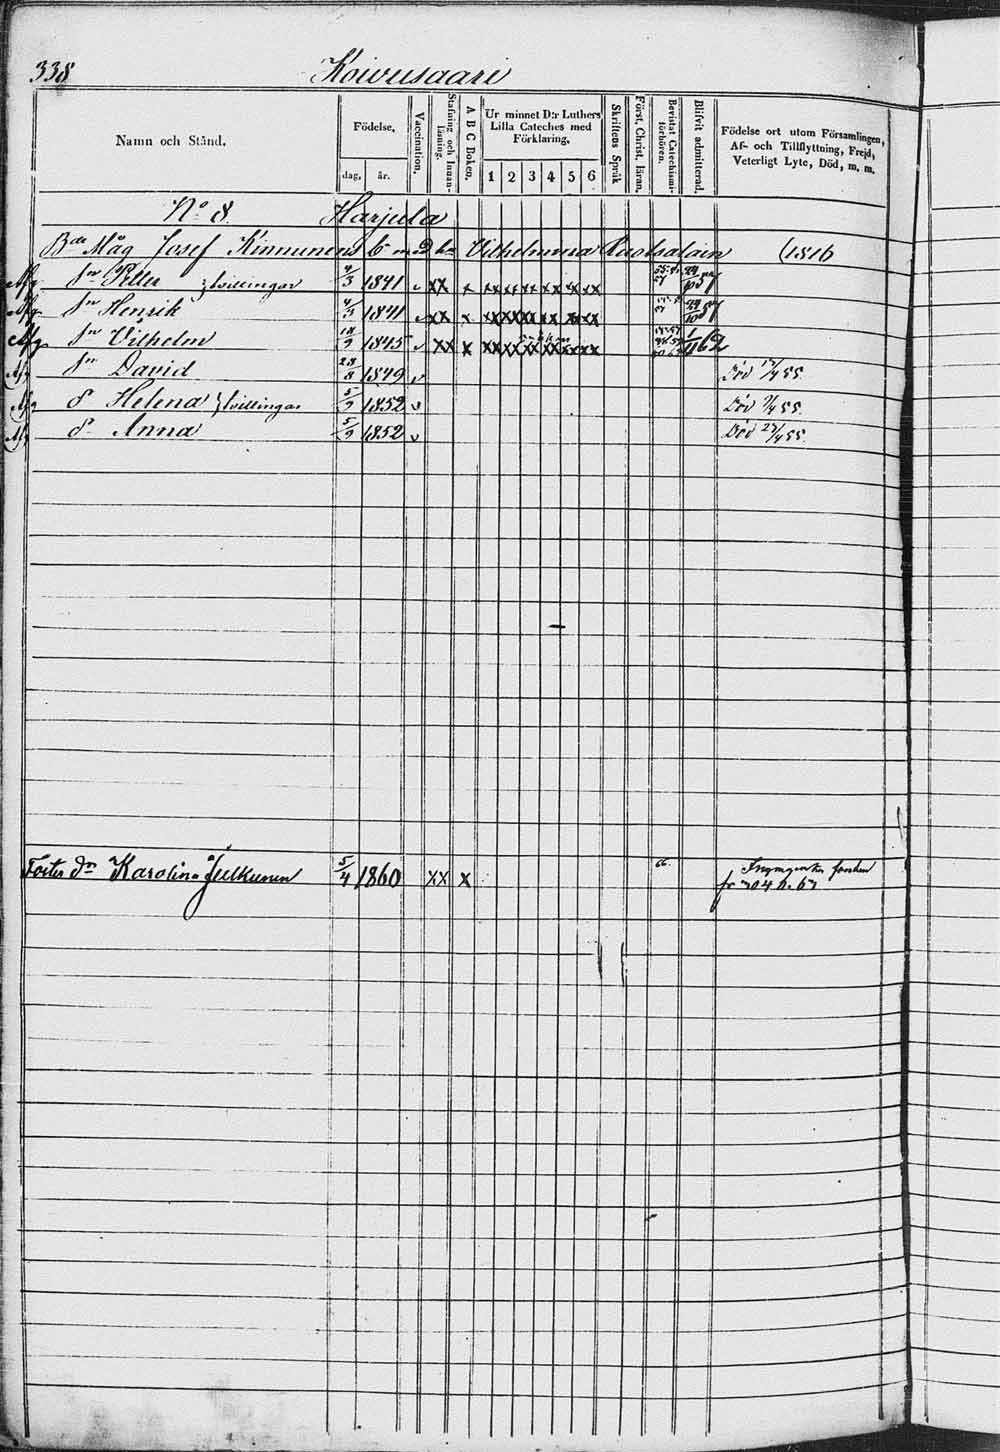 338 Koivusaari
Namn och Stånd.
Födelse,
dag, år.
Vaccination.
Stafning och Innanläsning.
A B C Boken.
Ur minnet D:r Luthers Lilla Cateches med Förklaring,
1 2 3 4 5 6
Skriftens Språk
Först. Christ. läran.
Bevistat Catechismiförhören.
Blifvit admitterad.
Födelse ort utom Församlingen,
Af- och Tillflyttning, Frejd,
Veterligt Lyte, Död, m. m.
No 8. Harjula
Måg Josef Kinnunens b med Vilhelmina Ruotsalain (1816
Sn Petter } tvillingar 4/3 1841 v xx x xx xx xx xx xx xx
Sn Henrik 4/3 1841 v xx x xx xx xx xx xx xx 57
Sn Vilhelm 1845 v xx x xx xx xx xx xx xx 62
Sn David 23/8 1849 v Död 55.
d Helena } tvillingar 5/9 1852 v Död 55.
d. Anna 5/9 1852 v Död 55.
Foster dr Karolina Julkunen 5/4 1860 xx x
fr 704 h. 67